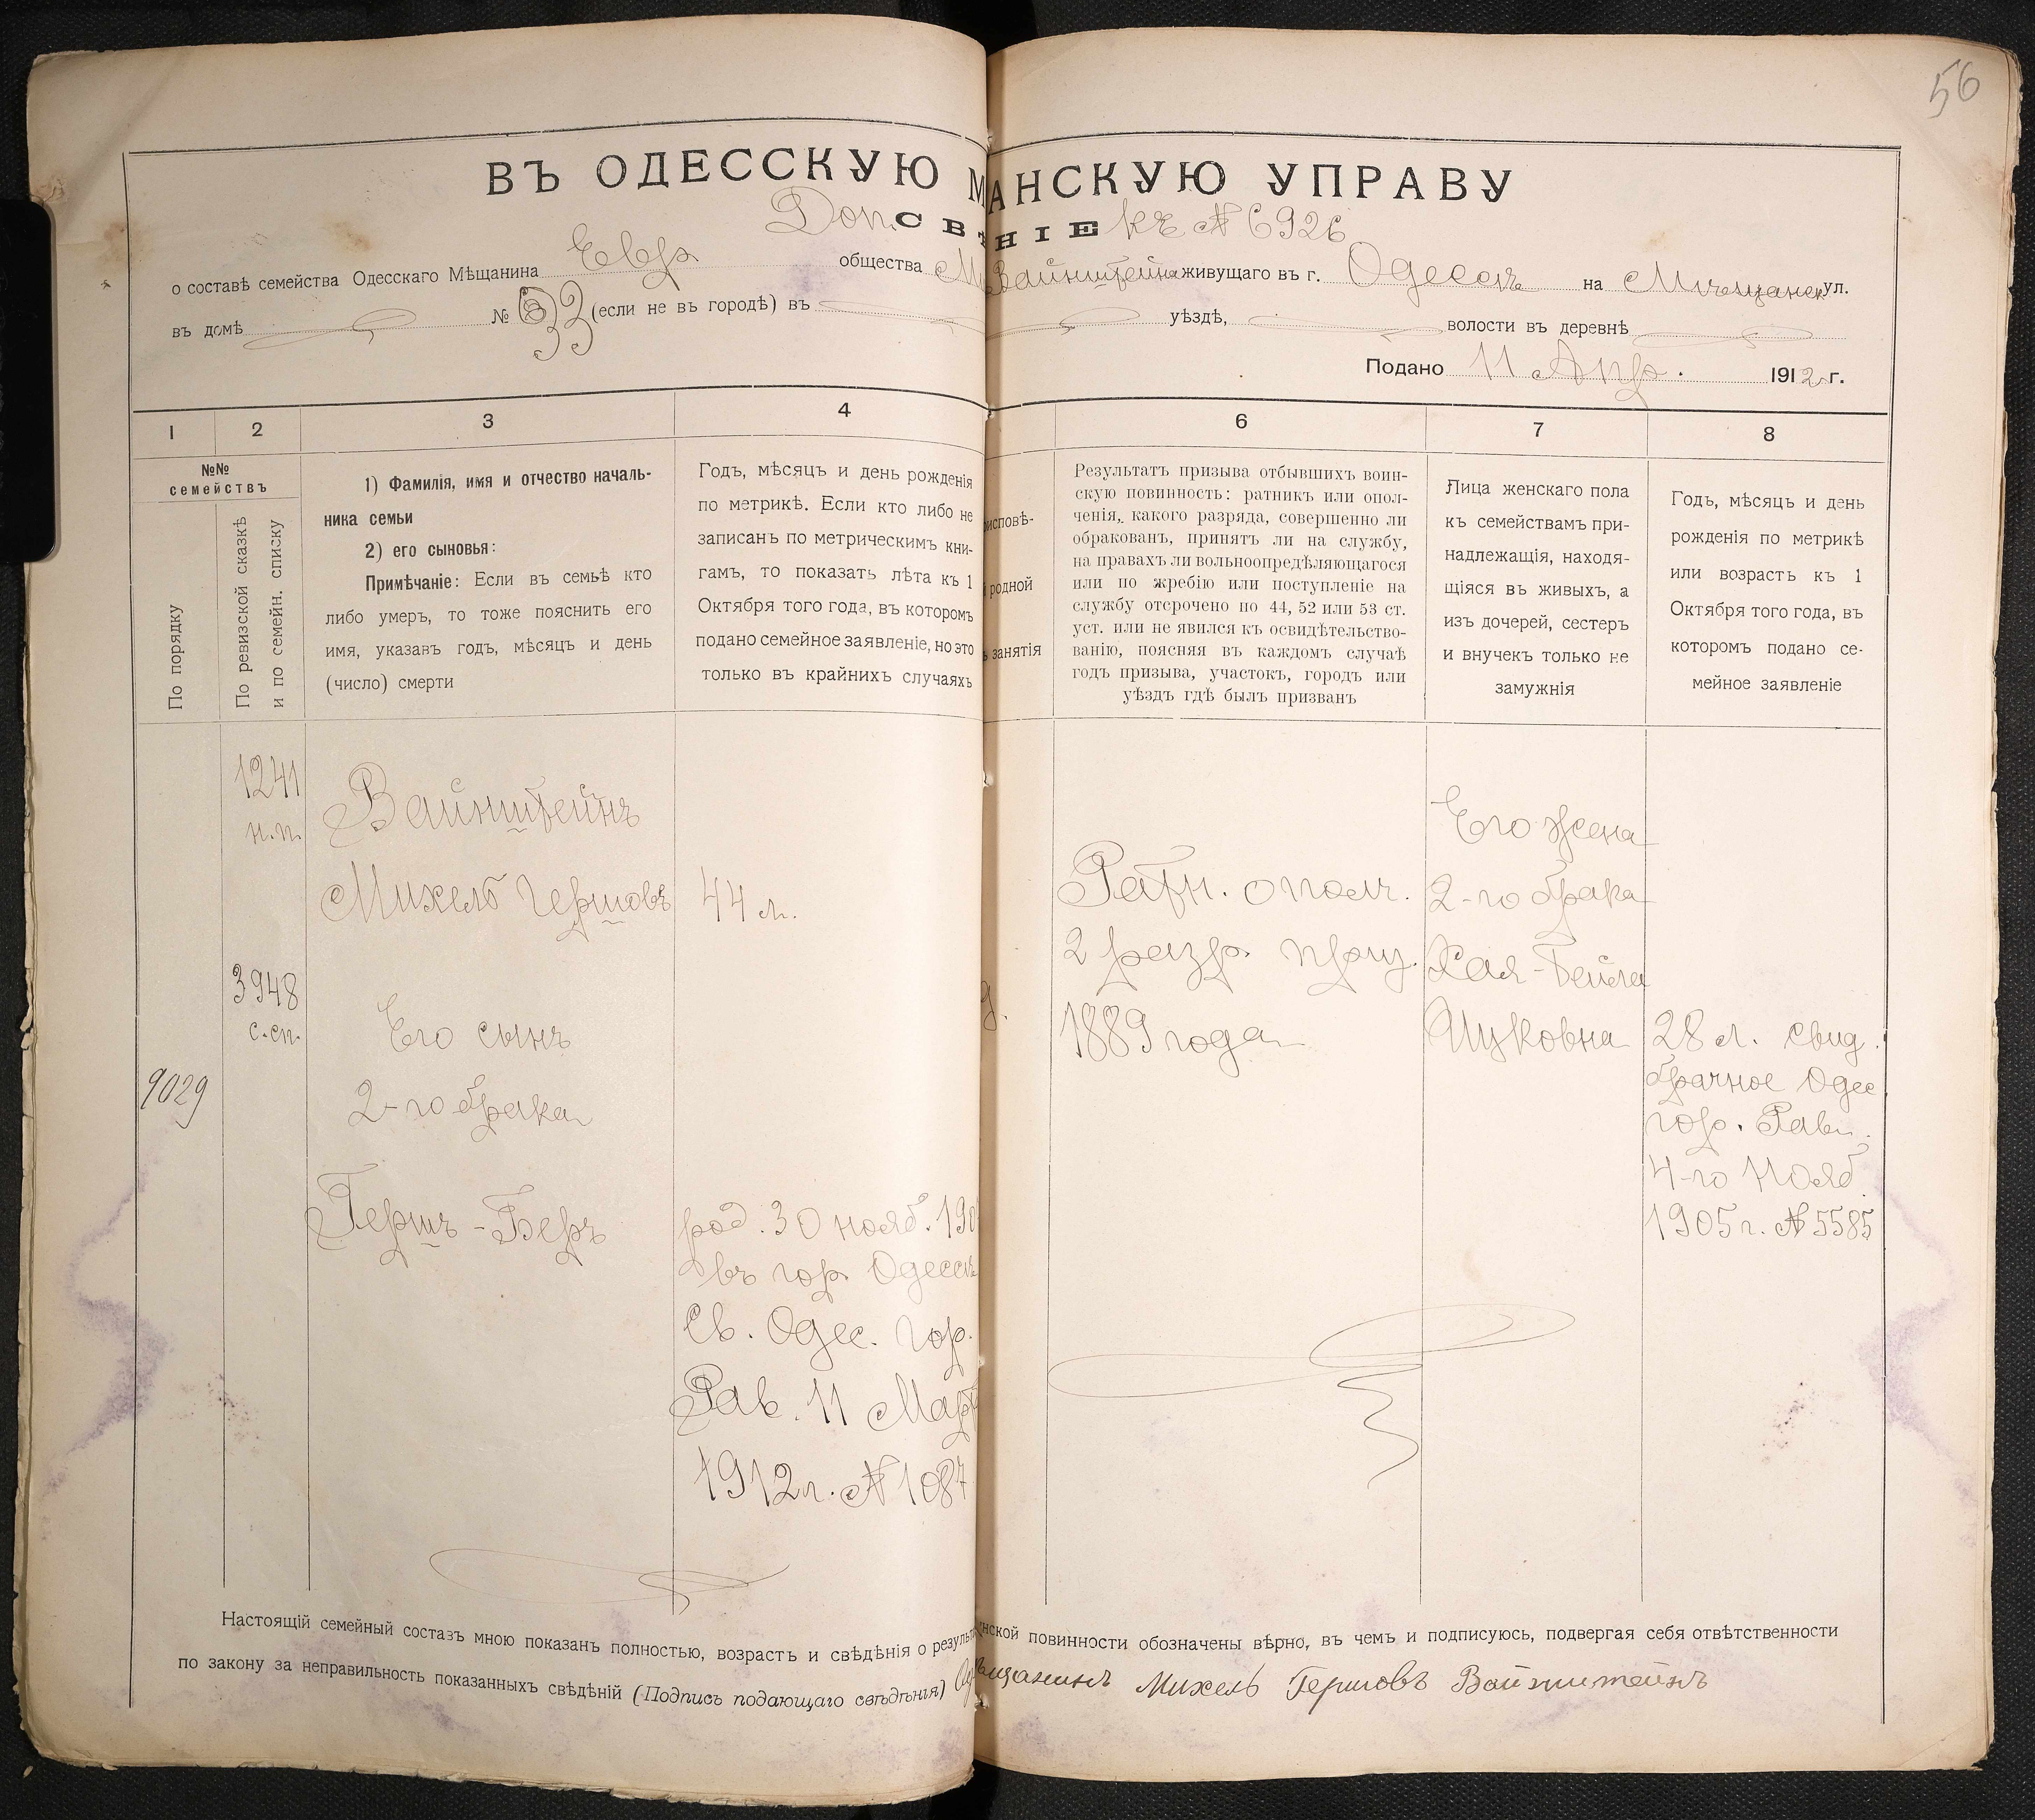 56
ВЪ ОДЕССКУЮ М АНСКУЮ УПРАВУ
Доп. СВ НІЕ къ № 6926
о составѣ семейства Одесскаго Мѣщанина Евр. общества М Вайнштейна живущаго въ г. Одессѣ на Мѣщанск ул.
въ домѣ № 33 (если не въ городѣ) въ уѣздѣ, волости въ деревнѣ
Подано 11 Апр. 1912 г.
1 2 3 4 6 7 8
№№ семействъ
По порядку
По ревизской сказкѣ
и по семейн. списку
1) Фамилія, имя и отчество началь-
ника семьи
2) его сыновья:
Примѣчаніе: Если въ семьѣ кто
либо умеръ, то тоже пояснить его
имя, указавъ годъ, мѣсяцъ и день
(число) смерти
Годъ, мѣсяцъ и день рожденія
по метрикѣ. Если кто либо не
записанъ по метрическимъ кни-
гамъ, то показать лѣта къ 1
Октября того года, въ которомъ
подано семейное заявленіе, но это
только въ крайнихъ случаяхъ
исповѣ-
родной
занятія
Результатъ призыва отбывшихъ воин-
скую повинность: ратникъ или опол-
ченія, какого разряда, совершенно ли
обракованъ, принятъ ли на службу,
на правахъ ли вольноопредѣляющагося
или по жребію или поступленіе на
службу отсрочено по 44, 52 или 53 ст.
уст. или не явился къ освидѣтельство-
ванію, поясняя въ каждомъ случаѣ
годъ призыва, участокъ, городъ или
уѣздъ гдѣ былъ призванъ
Лица женскаго пола
къ семействамъ при-
надлежащія, находя-
щіяся въ живыхъ, а
изъ дочерей, сестеръ
и внучекъ только не
замужнія
Годъ, мѣсяцъ и день
рожденія по метрикѣ
или возрастъ къ 1
Октября того года, въ
которомъ подано се-
мейное заявленіе
9029
1241
н.п.
3948
с.сп.
Вайнштейнъ
Михель Гершовъ
Его сынъ
2-го брака
Гершъ-Беръ
44 л.
род. 30 нояб. 190
въ гор Одессѣ
Св. Одес. гор.
Рав. 11 Март
1912 г. № 1087
Ратн. ополч.
2 разр. приз.
1889 года
Его жена
2-го брака
Хая-Бейла
Ицковна
28 л. свид.
брачное Одес
гор. Равв.
4-го Нояб.
1905 г. № 5585
Настоящій семейный составъ мною показанъ полностью, возрастъ и свѣдѣнія о результ нской повинности обозначены вѣрно, въ чемъ и подписуюсь, подвергая себя отвѣтственности
по закону за неправильность показанныхъ свѣдѣній (Подпись подающаго свѣдѣнія) Од ѣщанинъ Михель Гершовъ Вайнштейнъ